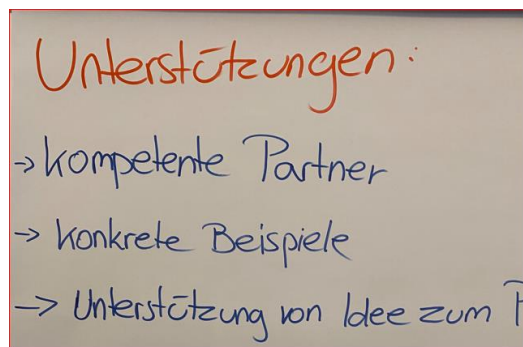 Unterstützungen:
-> kompetente Partner
-> konkrete Beispiele
-> Unterstützung von Idee zum